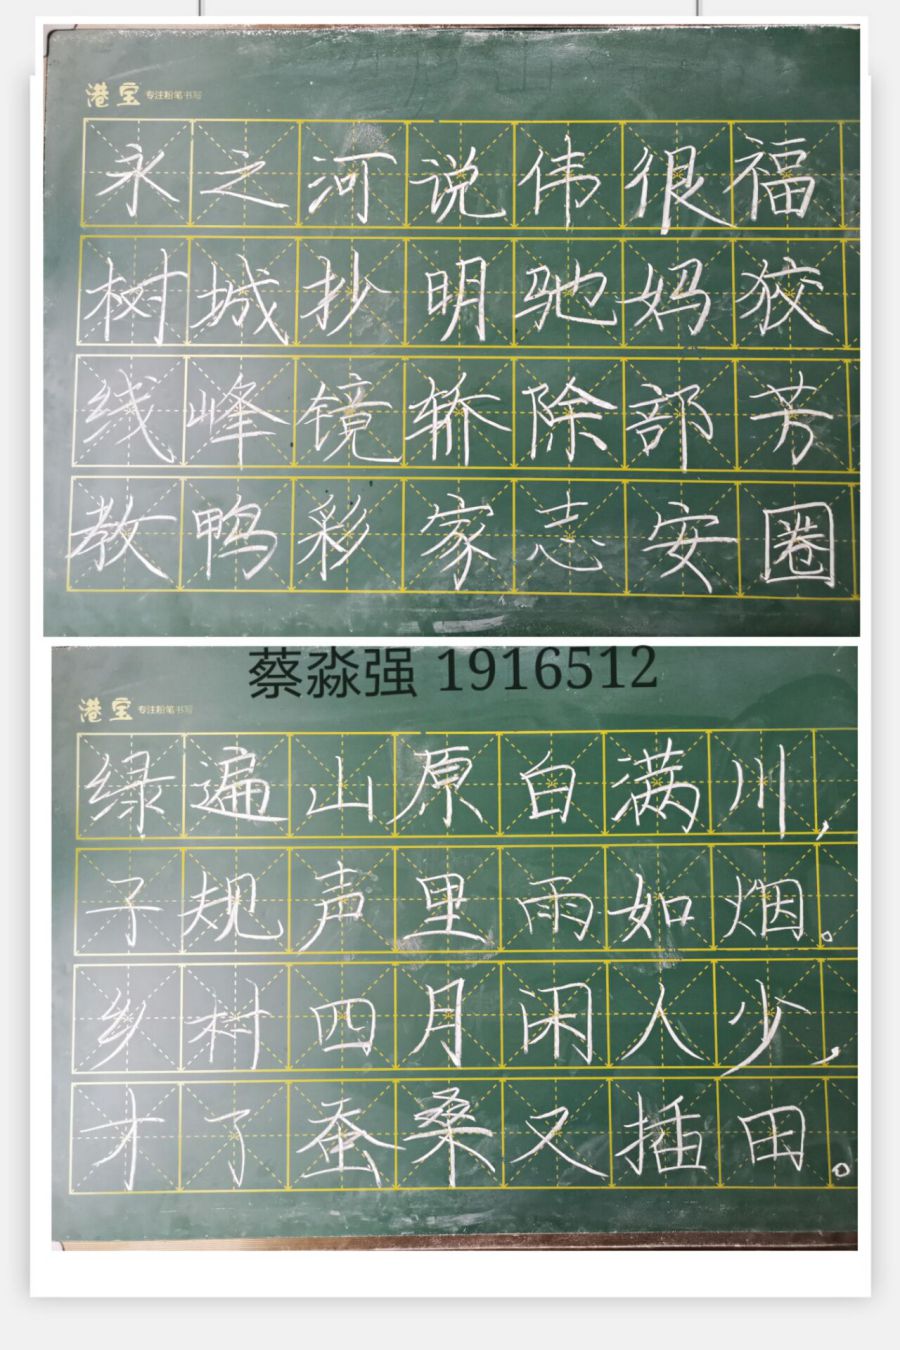 港宝 专注粉笔书写
永之河说伟很福
树城抄明驰妈狡
线峰镜轿除部芳
教鸭彩家志安圈
蔡淼强 1916512
港宝 专注粉笔书写
绿遍山原白满川，
子规声里雨如烟。
乡村四月闲人少，
才了蚕桑又插田。